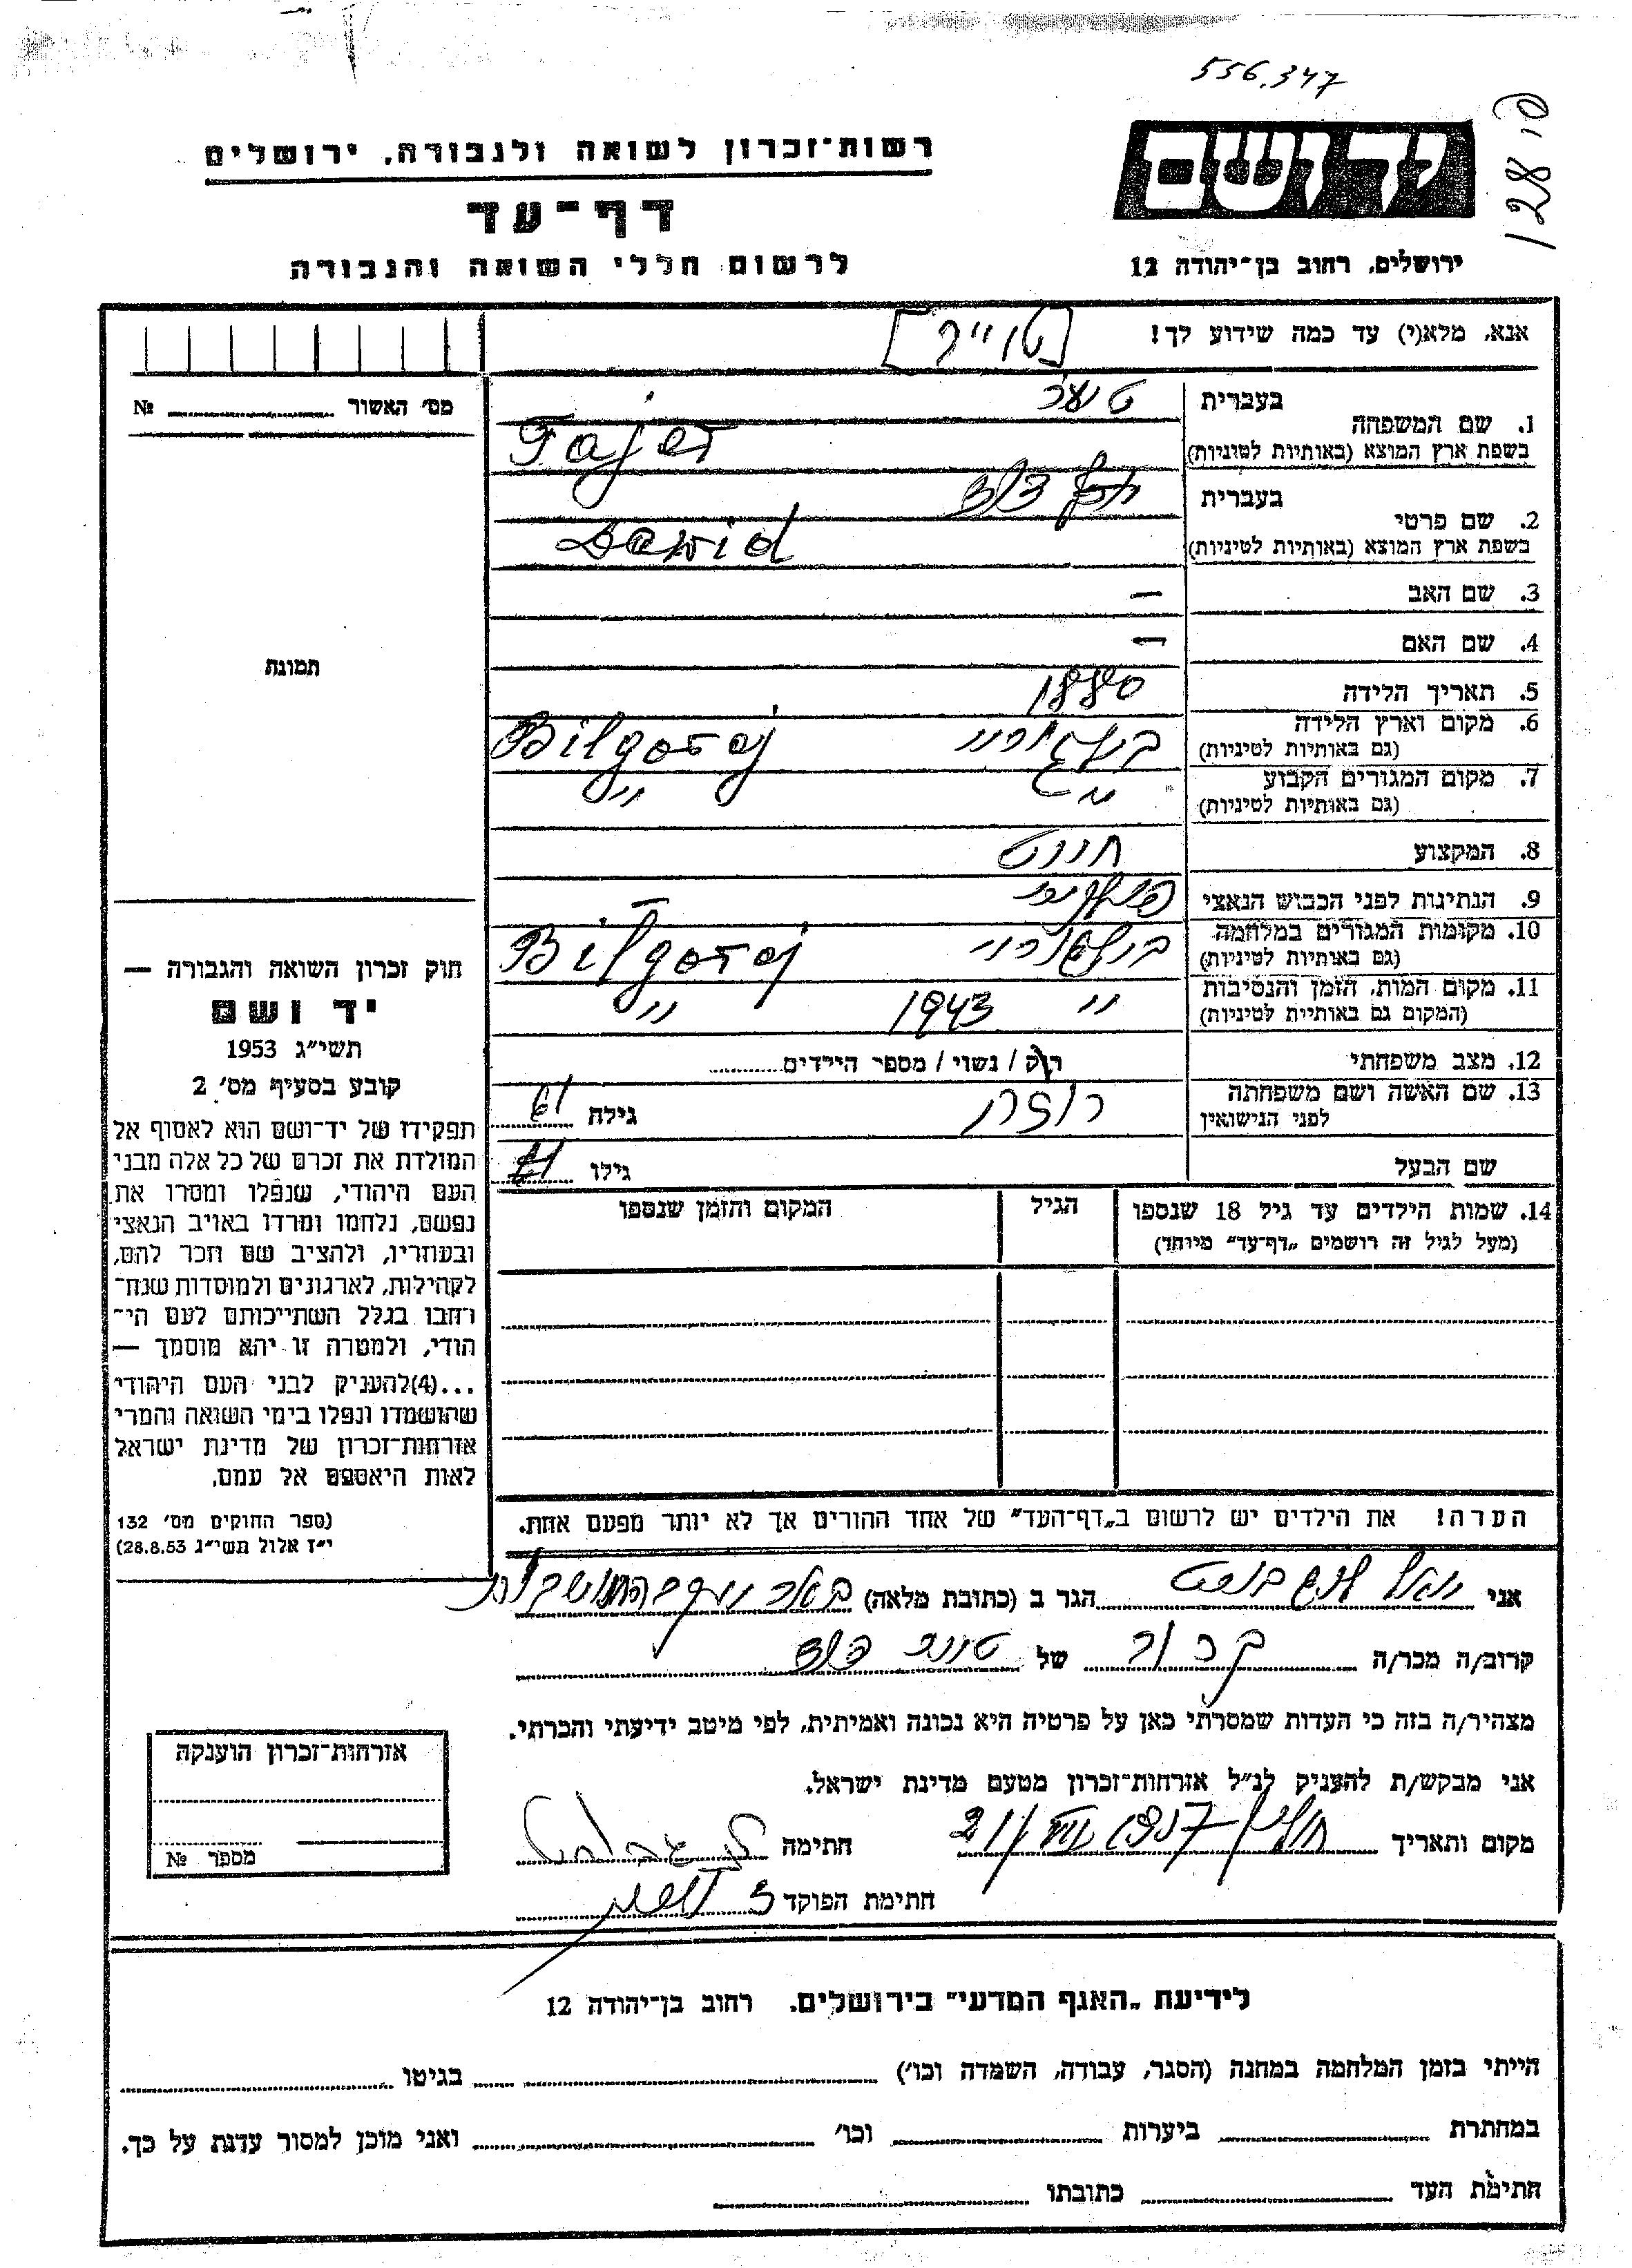 556.347
128 פו
יד ושם
רשות־זכרון לשואה ולגבורה, ירושלים
דף־עד
לרשום חללי השואה והגבורה
ירושלים, רחוב בן־יהודה 12
אנא, מלא(י) עד כמה שידוע לך!
מס' האשור № 
1. שם המשפחה
בעברית
בשפת ארץ המוצא (באותיות לטיניות) Fajer
2. שם פרטי
בעברית דוד
בשפת ארץ המוצא (באותיות לטיניות) Dawid
3. שם האב —
4. שם האם —
5. תאריך הלידה 1880
6. מקום וארץ הלידה
(גם באותיות לטיניות) בילגוריי Bilgoraj
7. מקום המגורים הקבוע
(גם באותיות לטיניות) " "
8. המקצוע
9. הנתינות לפני הכבוש הנאצי פולנית
10. מקומות המגורים במלחמה
(גם באותיות לטיניות) בילגוריי Bilgoraj
11. מקום המות, הזמן והנסיבות
(המקום גם באותיית לטיניות) " 1943 "
12. מצב משפחתי רוק / נשוי / מספר הילדים
13. שם האשה ושם משפחתה
לפני הנישואין גילה 61
שם הבעל גילו
14. שמות הילדים עד גיל 18 שנספו הגיל המקום והזמן שנספו
(מעל לגיל זה רושמים „דף־עד" מיוחד)
הערה! את הילדים יש לרשום ב„דף־העד" של אחד ההורים אך לא יותר מפעם אחת.
תמונה
חוק זכרון השואה והגבורה —
יד ושם
תשי"ג 1953
קובע בסעיף מס' 2
תפקידו של יד־ושם הוא לאסוף אל
המולדת את זכרם של כל אלה מבני
העם היהודי, שנפלו ומסרו את
נפשם, נלחמו ומרדו באויב הנאצי
ובעוזריו, ולהציב שם וזכר להם,
לקהילות, לארגונים ולמוסדות שנח־
רחבו בגלל השתייכותם לעם הי־
הודי, ולמטרה זו יהא מוסמך —
...(4)להעניק לבני העם היהודי
שהושמדו ונפלו בימי השואה והמרי
אזרחות־זכרון של מדינת ישראל
לאות היאספם אל עמם.
(ספר החוקים מס' 132
י"ז אלול תשי"ג 28.8.53)
אני הגר ב (כתובת מלאה)
קרוב/ה מכר/ה של
מצהיר/ה בזה כי העדות שמסרתי כאן על פרטיה היא נכונה ואמיתית, לפי מיטב ידיעתי והכרתי.
אני מבקש/ת להעניק לנ"ל אזרחות־זכרון מטעם מדינת ישראל.
מקום ותאריך חתימה
חתימת הפוקד
אזרחות־זכרון הוענקה
מספר №
לידיעת „האגף המדעי" בירושלים. רחוב בן־יהודה 12
הייתי בזמן המלחמה במחנה (הסגר, עבודה, השמדה וכו') בגיטו
במחתרת ביערות וכו' ואני מוכן למסור עדות על כך.
חתימת העד כתובתו